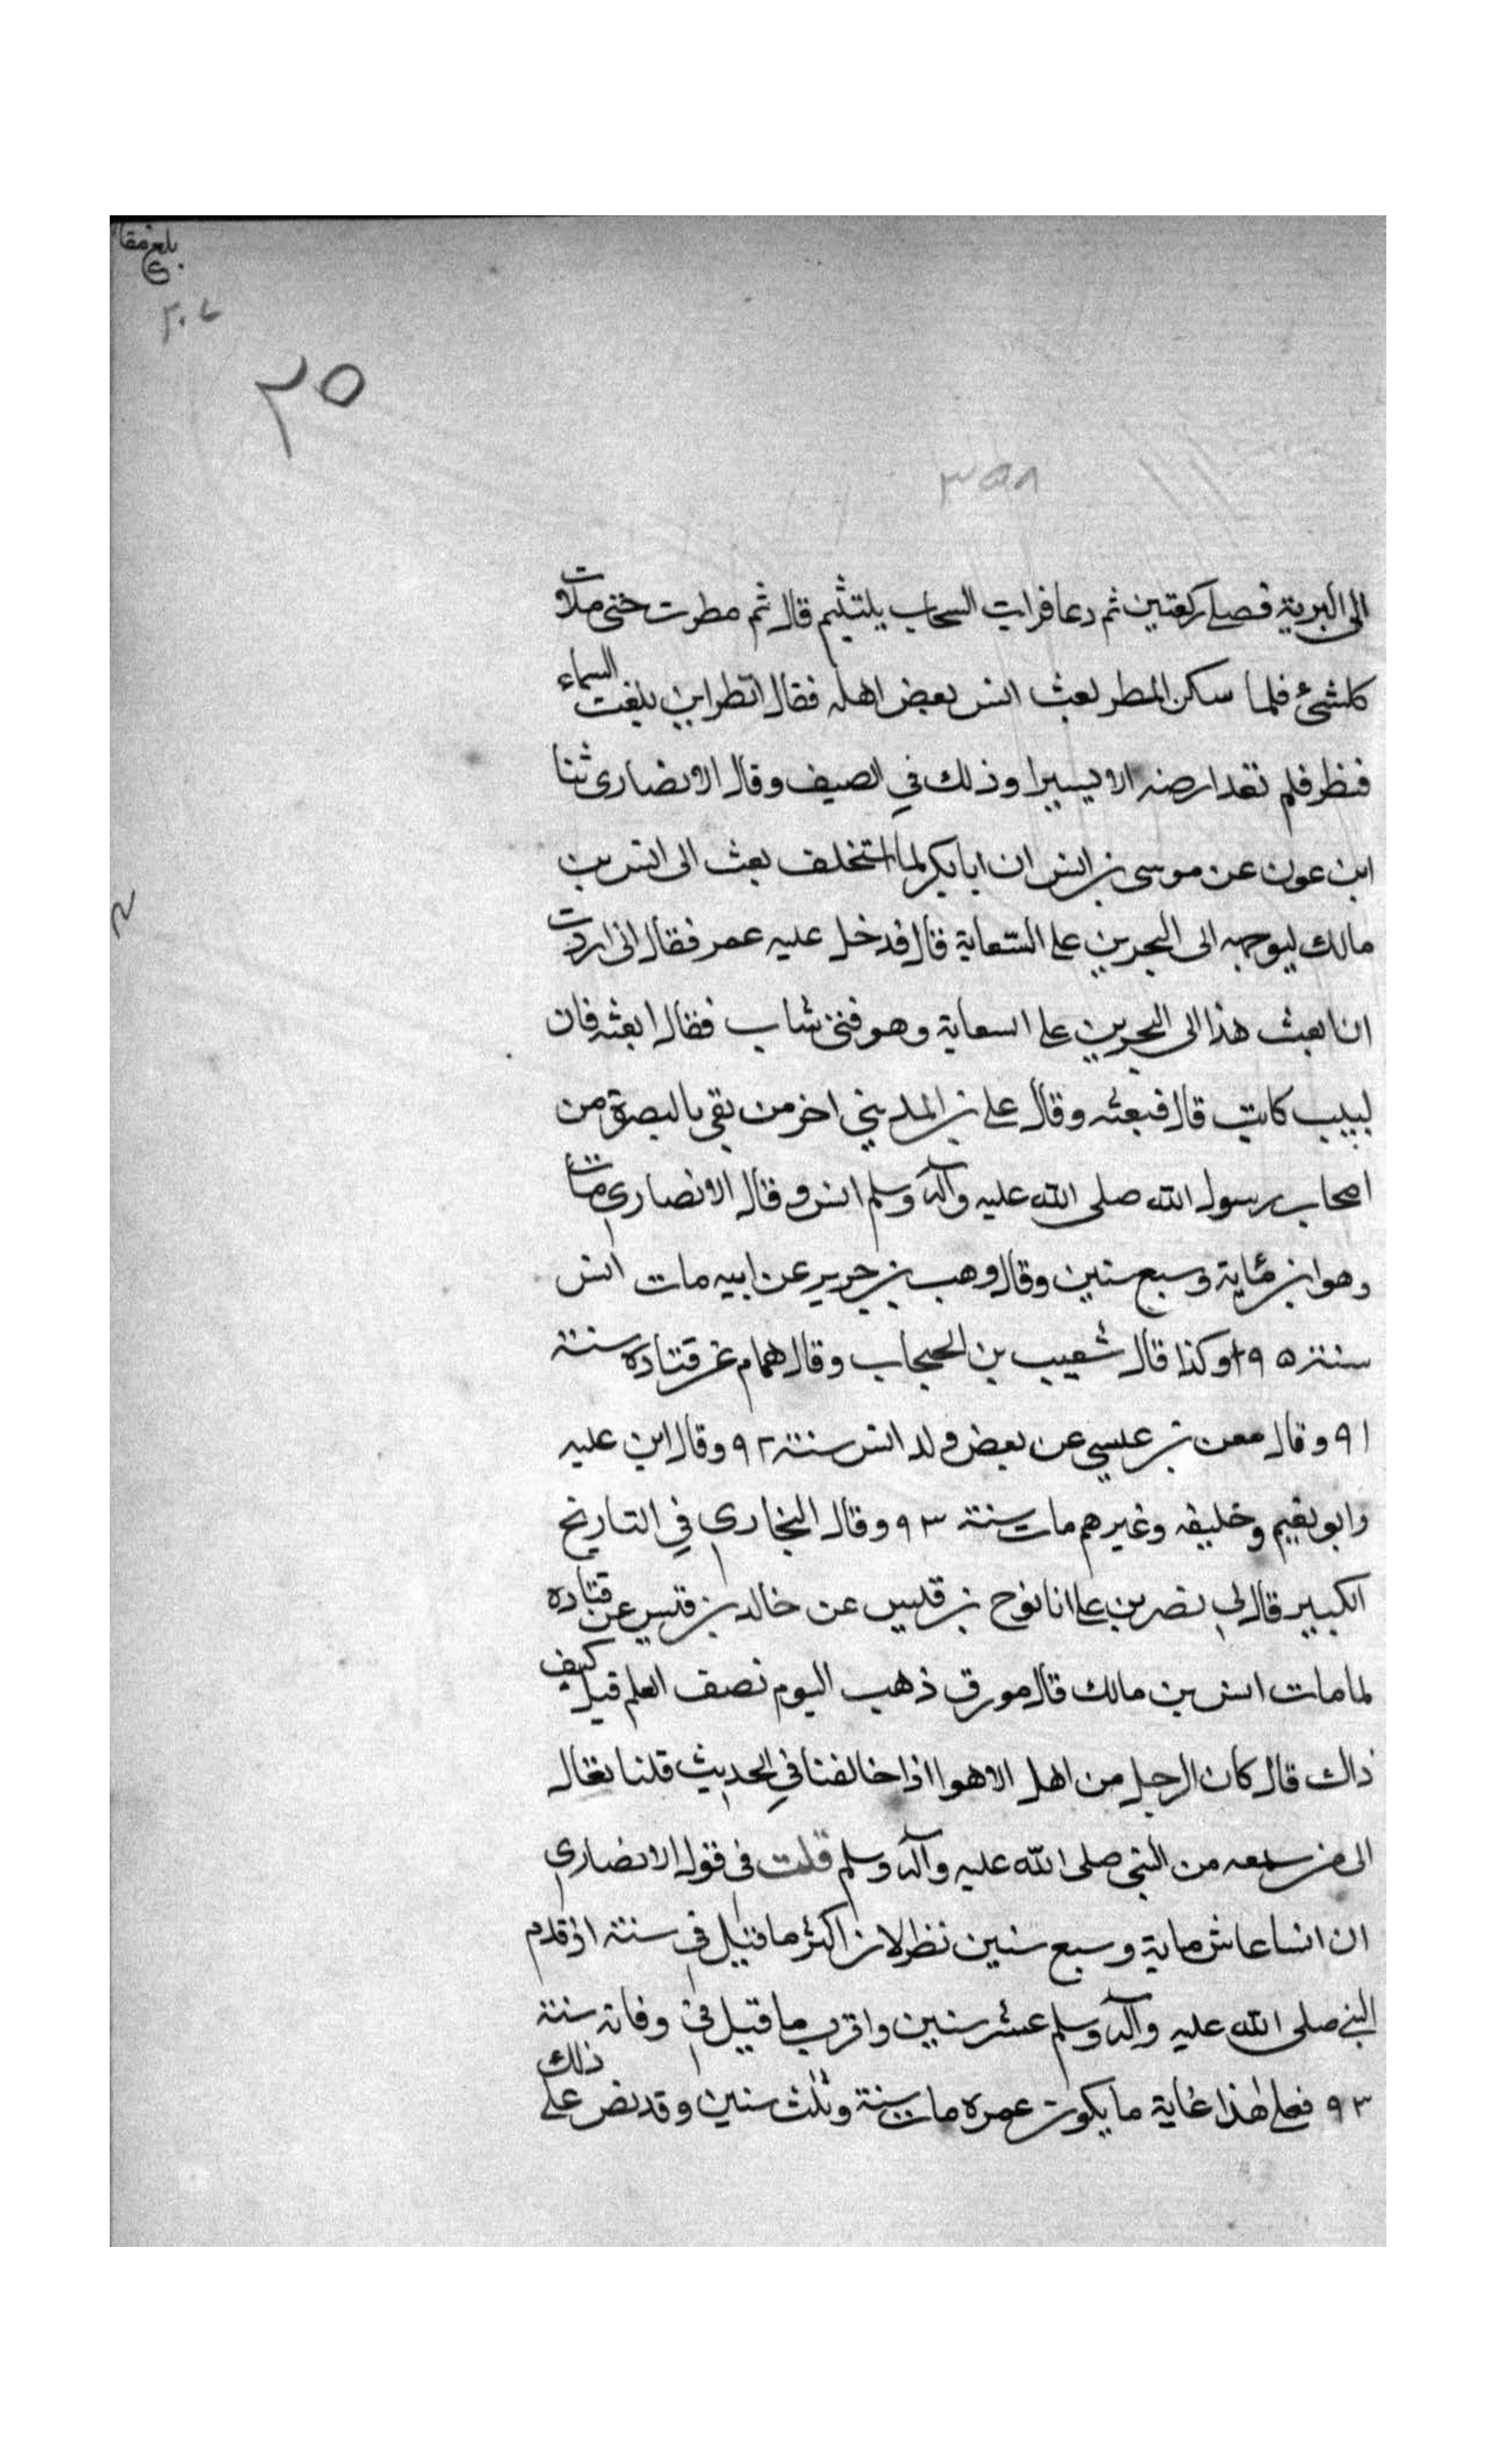 بلغ مقا
٢٠٤
٢٥
٣٥٨
الى البرية فصلى ركعتين ثم دعا فرايت السحاب يلتئم قال ثم مطرت حتى ملات
كلشئ فلما سكن المطر بعث انس بعض اهله فقال انظر اين بلغت السماء
فنظر فلم تعد ارضه الا يسيرا وذلك في الصيف وقال الانصارى ثنا
ابن عون عن موسى بن انس ان ابا بكر لما استخلف بعث الى انس بن
مالك ليوجهه الى البحرين على السعاية قال فدخل عليه عمر فقال انى اردت
ان ابعث هذا الى البحرين على السعاية وهو فتى شاب فقال ابعثه فان
لبيب كاتب قال فبعثه وقال على بن المدينى اخر من بقى بالبصرة من
اصحاب رسول الله صلى الله عليه وآله وسلم انس وقال الانصارى مات
وهو ابن مئاية وسبع سنين وقال وهب بن جرير عن ابيه مات انس
سنة ٩٥ وكذا قال شعيب بن الحبحاب وقال همام عن قتاده سنة
٩١ وقال معن بن عيسى عن بعض ولد انس سنة ٩٢ وقال ابن عليه
وابو نعيم وخليفه وغيرهم مات سنة ٩٣ وقال البخارى في التاريخ
الكبير قال لى نصر بن على انا نوح بن قيس عن خالد بن قيس عن قتاده
لما مات انس بن مالك قال مورق ذهب اليوم نصف العلم قيل كيف
ذاك قال كان الرجل من اهل الاهوا اذا خالفنا في الحديث قلنا تعال
الى من سمعه من النبى صلى الله عليه وآله وسلم قلت فى قول الانصارى
ان انسا عاش ماية وسبع سنين نظر لان اكثر ما قيل فى سنه اذ قدم
النبى صلى الله عليه وآله وسلم عشر سنين واقرب ما قيل فى وفاته سنة
٩٣ فعلى هذا غاية ما يكون عمره مات سنة وثلث سنين وقد نص على ذلك